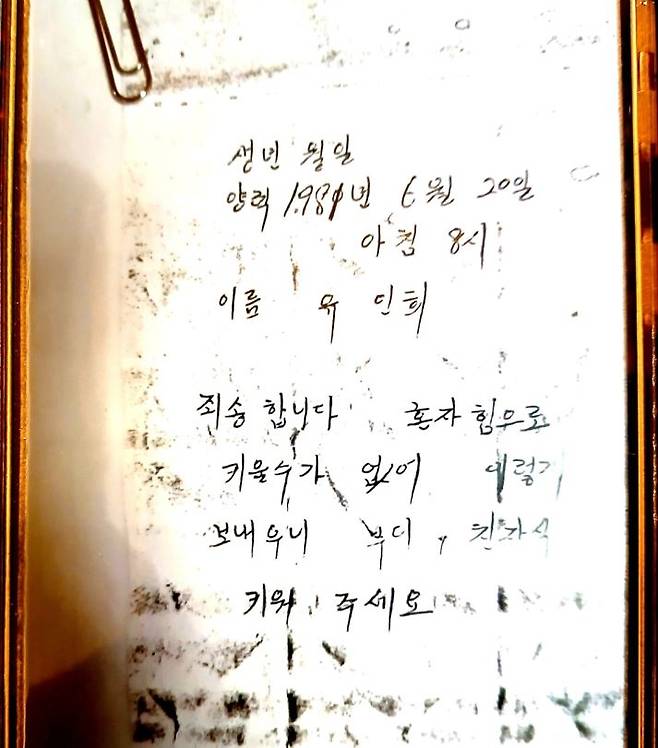 생년 월일
양력 1981년 6월 20일
아침 8시
이름 유 민희
죄송 합니다 혼자 힘으로
키울수가 없어 이렇게
보내우니 부디, 친자식
키워 주세요